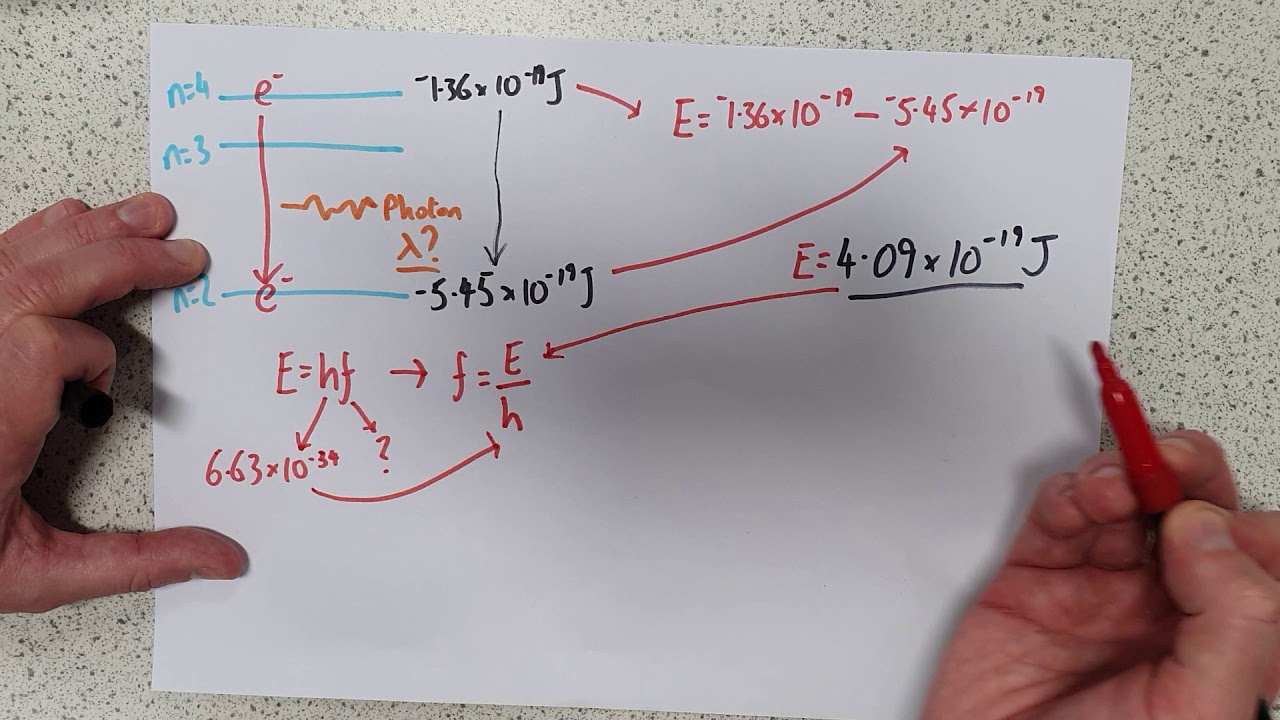 n=4 e⁻ ⁻1.36×10⁻¹⁹J
E= ⁻1.36×10⁻¹⁹ – ⁻5.45×10⁻¹⁹
n=3
Photon
λ?
E= 4.09×10⁻¹⁹J
n=2 e⁻ ⁻5.45×10⁻¹⁹J
E=hf → f=E/h
6.63×10⁻³⁴ ?